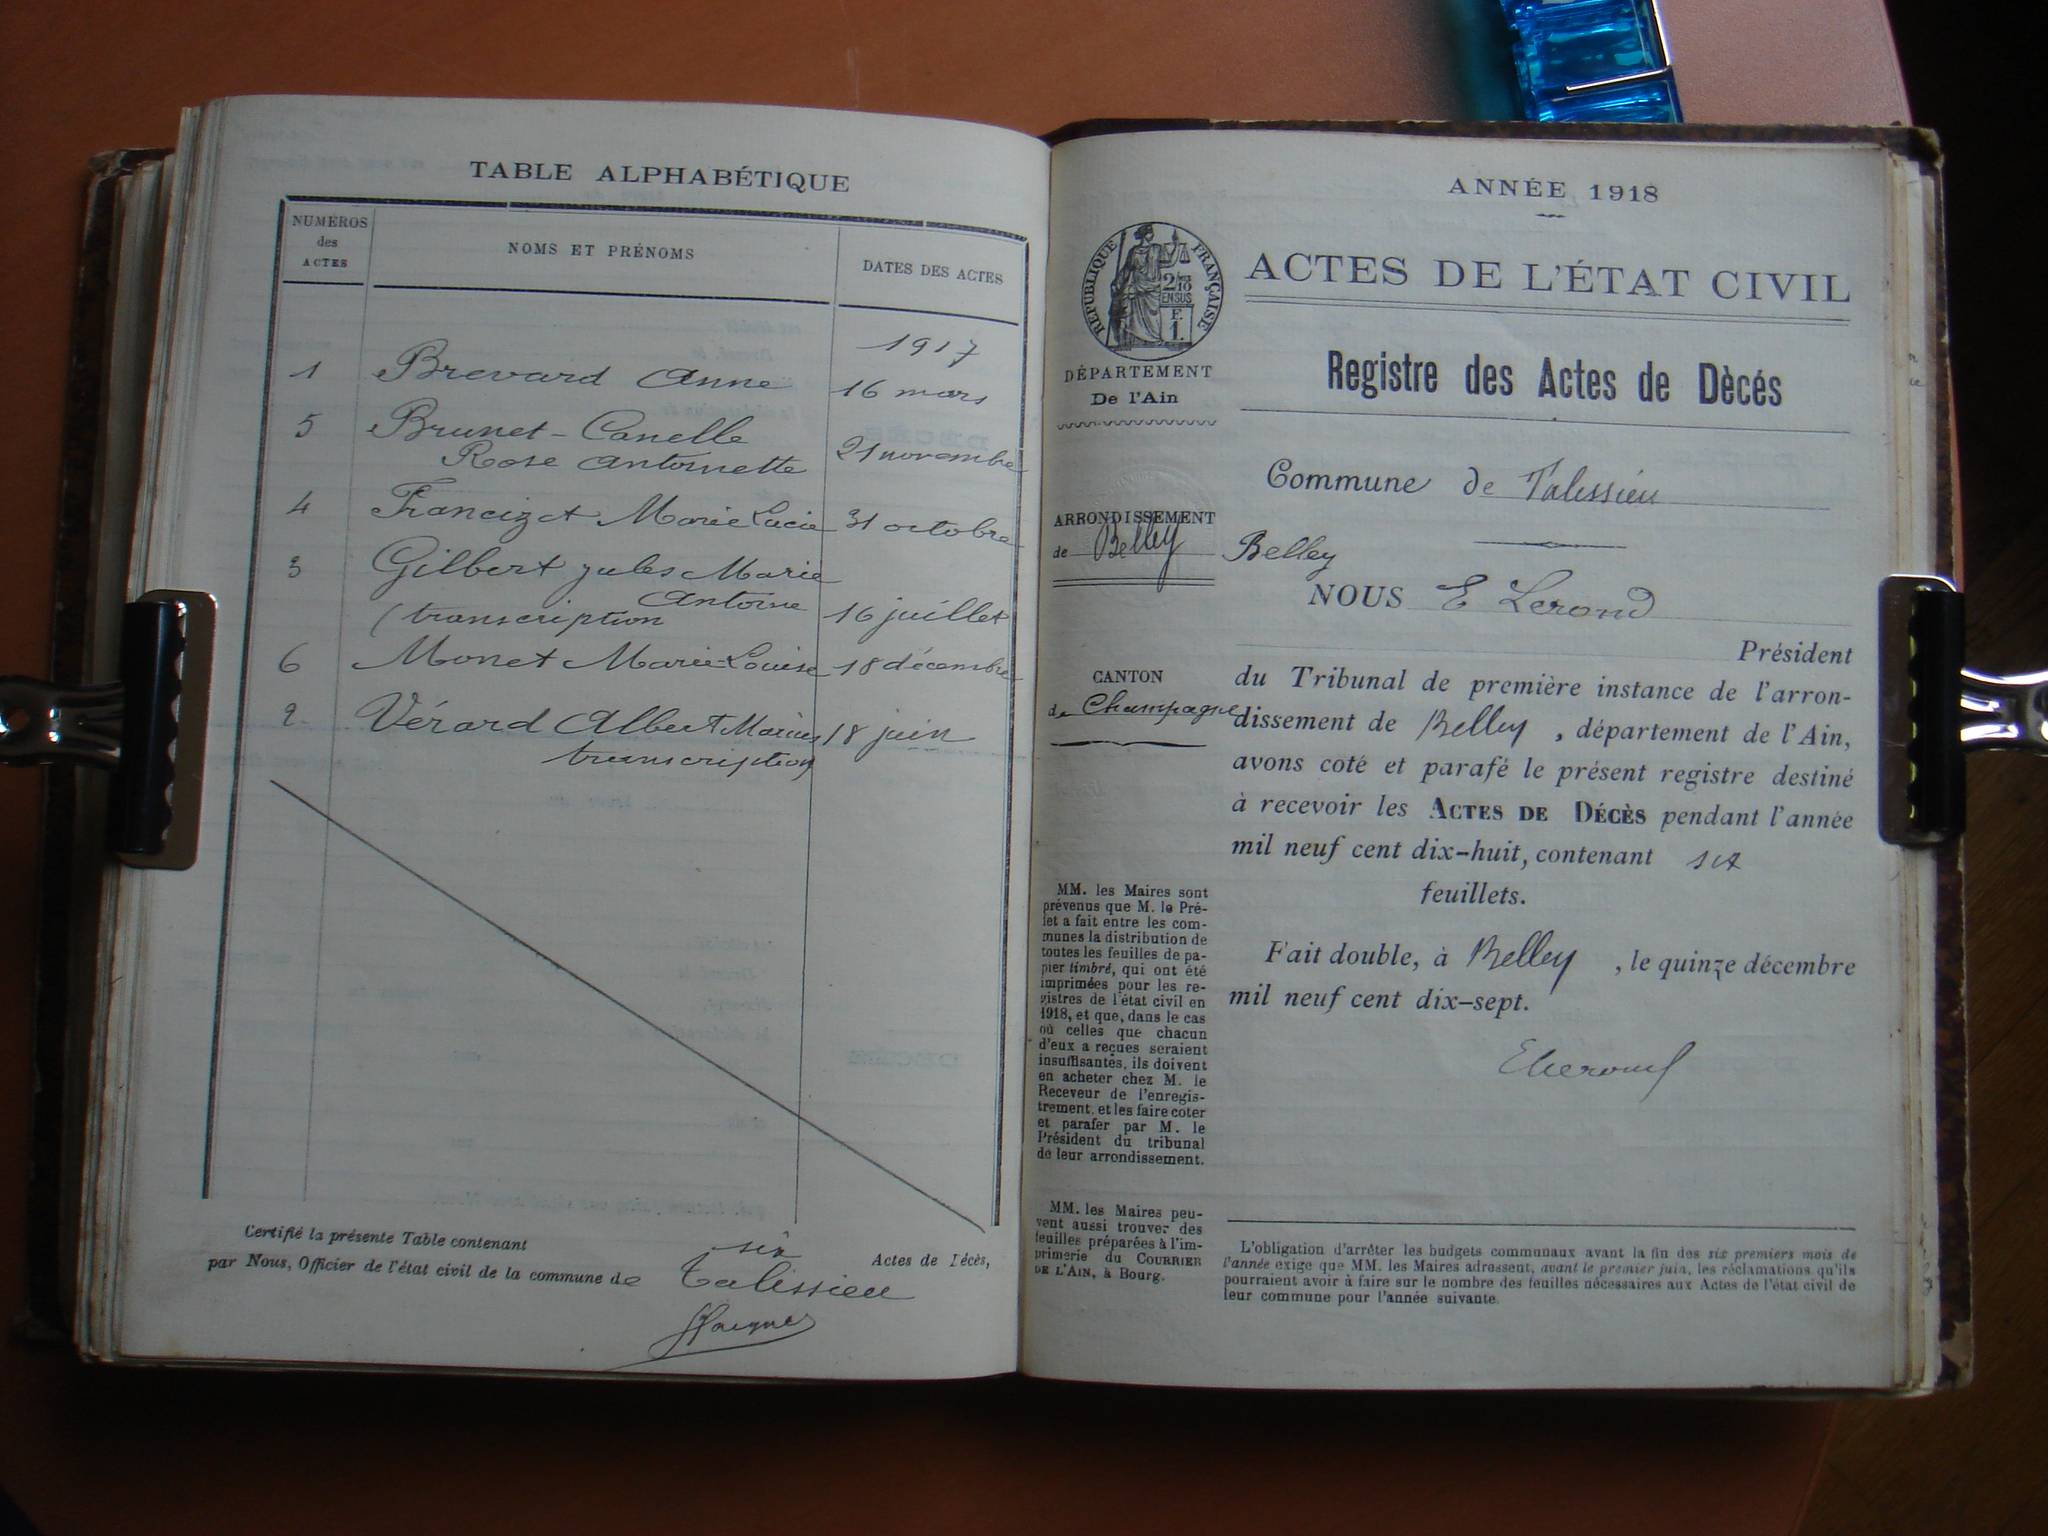 TABLE ALPHABÉTIQUE
NUMÉROS
des
ACTES
NOMS ET PRÉNOMS
DATES DES ACTES
1917
1 Brevard Anne 16 mars
5 Brunet-Canelle
Rose Antoinette 21 novembre
4 Francizet Marie Lucie 31 octobre
3 Gilbert jules Marie
Antoine
(transcription 16 juillet
6 Monet Marie Louise 18 décembre
2 Vérard Albert Marius 18 juin
transcription
Certifié la présente Table contenant six Actes de Décès,
par Nous, Officier de l'état civil de la commune de Talissieu
ANNÉE 1918
RÉPUBLIQUE FRANÇAISE
2/10
EN SUS
F.
1.
ACTES DE L'ÉTAT CIVIL
DÉPARTEMENT
De l'Ain
Registre des Actes de Dècés
Commune de Talissieu
ARRONDISSEMENT
de Belley
Belley
NOUS E Lerond
Président
CANTON
de Champagne
du Tribunal de première instance de l'arron-
dissement de Belley, département de l'Ain,
avons coté et parafé le présent registre destiné
à recevoir les ACTES DE DÉCÈS pendant l'année
mil neuf cent dix-huit, contenant six
feuillets.
Fait double, à Belley, le quinze décembre
mil neuf cent dix-sept.
ELerond
MM. les Maires sont
prévenus que M. le Pré-
fet a fait entre les com-
munes la distribution de
toutes les feuilles de pa-
pier timbré, qui ont été
imprimées pour les re-
gistres de l'état civil en
1918, et que, dans le cas
où celles que chacun
d'eux a reçues seraient
insuffisantes, ils doivent
en acheter chez M. le
Receveur de l'enregis-
trement, et les faire coter
et parafer par M. le
Président du tribunal
de leur arrondissement.
MM. les Maires peu-
vent aussi trouver des
feuilles préparées à l'im-
primerie du COURRIER
DE L'AIN, à Bourg.
L'obligation d'arrêter les budgets communaux avant la fin des six premiers mois de
l'année exige que MM. les Maires adressent, avant le premier juin, les réclamations qu'ils
pourraient avoir à faire sur le nombre des feuilles nécessaires aux Actes de l'état civil de
leur commune pour l'année suivante.